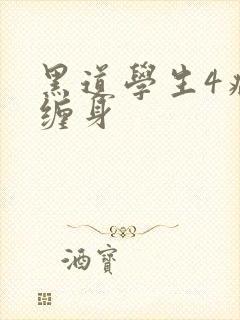 黑道學生4
缠身
酒寶